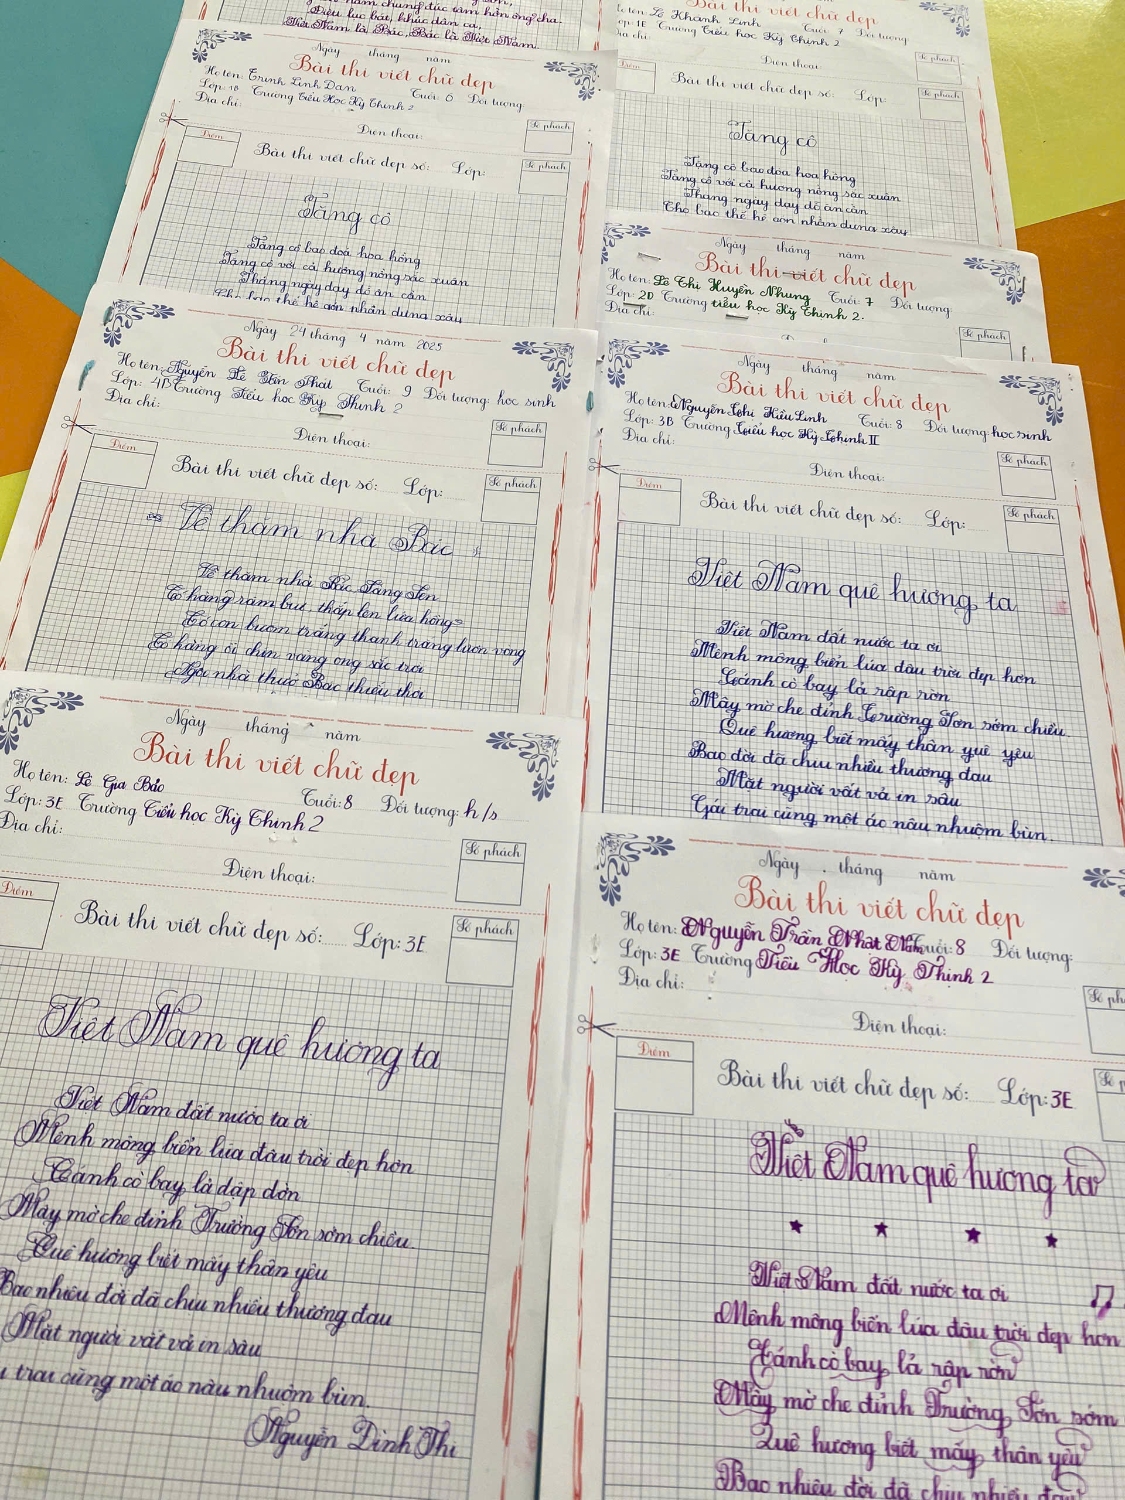 Điệu lục bát, khúc dân ca
Việt Nam là Bác, Bác là Việt Nam
Ngày tháng năm
Bài thi viết chữ đẹp
Họ tên: Trịnh Linh Đan Tuổi: 6 Đối tượng
Lớp: Trường Tiểu Học Kỳ Thịnh 2
Địa chỉ:
Điện thoại:
Số phách
Điểm
Bài thi viết chữ đẹp số: Lớp:
Số phách
Tặng cô
Tặng cô bao đoá hoa hồng
Tặng cô với cả hương nồng sắc xuân
Tháng ngày dạy dỗ ân cần
Cho bao thế hệ con nhân dựng xây
Bài thi viết chữ đẹp
tên: Lê Khánh Linh Tuổi 7 Đối tượng
1E Trường Tiểu học Kỳ Thịnh 2
Địa chỉ:
Điện thoại:
Số phách
Điểm
Bài thi viết chữ đẹp số: Lớp:
Số phách
Tặng cô
Tặng cô bao đoá hoa hồng
Tặng cô với cả hương nồng sắc xuân
Tháng ngày dạy dỗ ân cần
Cho bao thế hệ con nhân dựng xây
Ngày tháng năm
Bài thi viết chữ đẹp
Họ tên: Lê Thị Huyền Nhung Tuổi: 7 Đối tượng:
Lớp: 2D Trường tiểu học Kỳ Thịnh 2.
Địa chỉ:
Số phách
Ngày 24 tháng 4 năm 2025
Bài thi viết chữ đẹp
Họ tên: Nguyễn Lê Tấn Phát Tuổi: 9 Đối tượng: học sinh
Lớp: 4D Trường Tiểu học Kỳ Thịnh 2
Địa chỉ:
Điện thoại:
Số phách
Điểm
Bài thi viết chữ đẹp số: Lớp:
Số phách
Về thăm nhà Bác
Về thăm nhà Bác Làng Sen
Có hàng râm bụt, thắp lên lửa hồng
Có con bướm trắng thanh trắng lượn vòng
Có hàng ổi chín vàng ong sắc trời
Ngôi nhà thuở Bác thiếu thời
Ngày tháng năm
Bài thi viết chữ đẹp
Họ tên: Nguyễn Thị Kiều Linh Tuổi: 8 Đối tượng: học sinh
Lớp: 3B Trường Tiểu học Kỳ Thịnh II
Địa chỉ:
Điện thoại:
Số phách
Điểm
Bài thi viết chữ đẹp số: Lớp:
Số phách
Việt Nam quê hương ta
Việt Nam đất nước ta ơi
Mênh mông biển lúa đâu trời đẹp hơn
Cánh cò bay lả rập rờn
Mây mờ che đỉnh Trường Sơn sớm chiều.
Quê hương biết mấy thân yêu yêu
Bao đời đã chịu nhiều thương đau
Mặt người vất vả in sâu
Gái trai cũng một áo nâu nhuộm bùn.
Ngày tháng năm
Bài thi viết chữ đẹp
Họ tên: Lê Gia Bảo Tuổi: 8 Đối tượng: h/s
Lớp: 3E Trường Tiểu học Kỳ Thịnh 2
Địa chỉ:
Điện thoại:
Số phách
Điểm
Bài thi viết chữ đẹp số: Lớp: 3E
Số phách
Việt Nam quê hương ta
Việt Nam đất nước ta ơi
Mênh mông biển lúa đâu trời đẹp hơn
Cánh cò bay lả dập dờn
Mây mờ che đỉnh Trường Sơn sớm chiều.
Quê hương biết mấy thân yêu
Bao nhiêu đời đã chịu nhiều thương đau
Mặt người vất vả in sâu
trai cũng một áo nâu nhuộm bùn.
Nguyễn Đình Thi
Ngày tháng năm
Bài thi viết chữ đẹp
Họ tên: Nguyễn Trần Nhật Nam Tuổi: 8 Đối tượng:
Lớp: 3E Trường Tiểu Học Kỳ Thịnh 2
Địa chỉ:
Điện thoại:
Số
Điểm
Bài thi viết chữ đẹp số: Lớp: 3E
Số
Việt Nam quê hương ta
Việt Nam đất nước ta ơi
Mênh mông biển lúa đâu trời đẹp hơn
Cánh cò bay lả rập rờn
Mây mờ che đỉnh Trường Sơn sớm
Quê hương biết mấy thân yêu
Bao nhiêu đời đã chịu nhiều đau